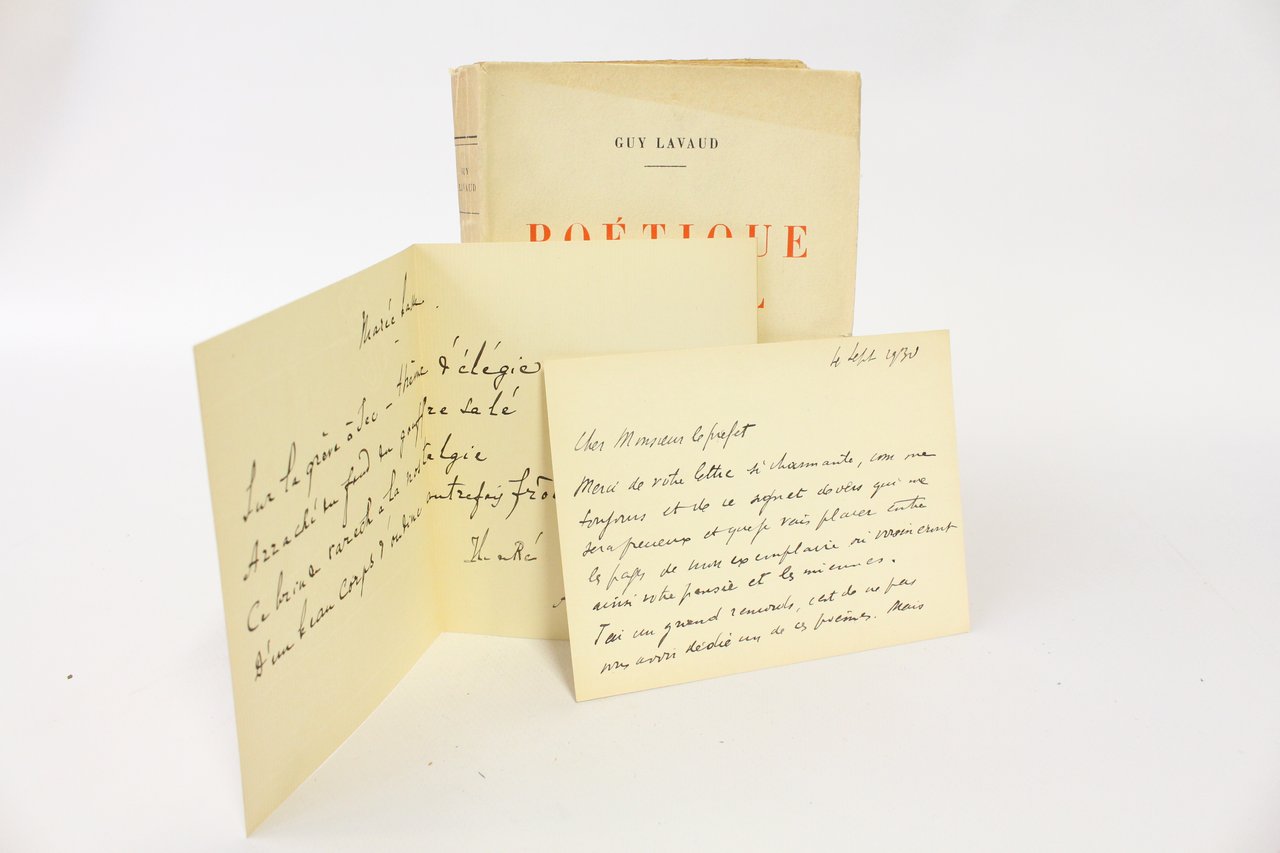 GUY LAVAUD
POÉTIQUE
GUY
LAVAUD
Marée basse.
Sur la grève à sec – thème d'élégie
Arraché au fond du gouffre salé
Ce brin de varech a la nostalgie
D'un beau corps d'ondine autrefois frôl
4 Sept 1930
Cher Monsieur le préfet
Merci de votre lettre si charmante, comme
toujours et de ce signet de vers qui me
sera précieux et que je vais placer entre
les pages de mon exemplaire où voisineront
ainsi votre pensée et les miennes.
J'ai un grand remords, c'est de ne pas
vous avoir dédié un de ces poèmes. Mais